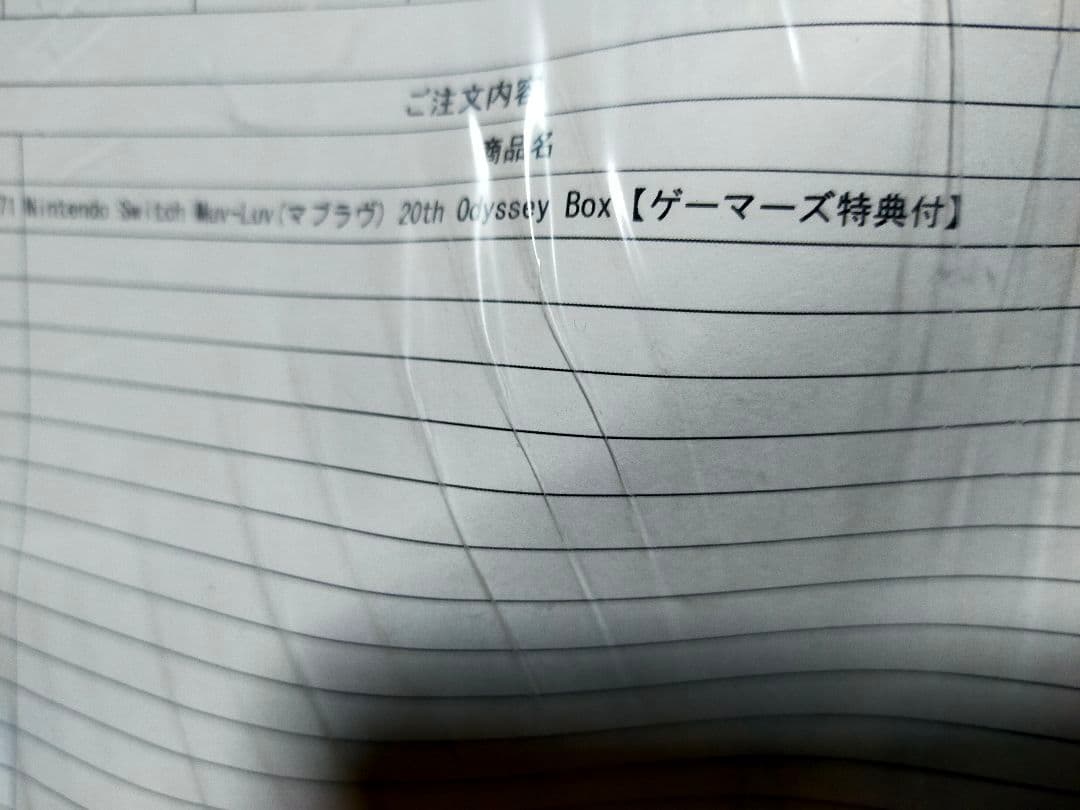 ご注文内容
商品名
71 Nintendo Switch Muv-Luv(マブラヴ) 20th Odyssey Box【ゲーマーズ特典付】